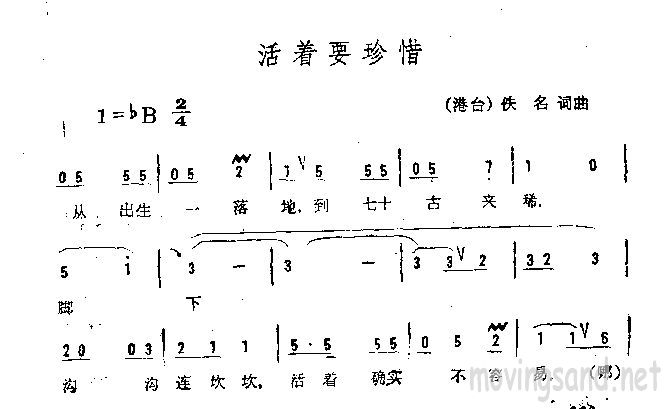 活着要珍惜
1=♭B 2/4 (港台)佚 名 词曲
05 55 | 05 2 | 1 V 5 55 | 05 7 | 1 0 |
从 出生 一 落 地,到 七十 古 来 稀,
5 i | 3 — | 3 — | 3 3 V 2 | 32 3 |
脚 下
20 03 | 2 1 1 | 5·5 55 | 05 2 | 1 1 V 6 |
沟 沟连 坎坎,活着 确实 不 容 易.(那)
movingsand.net